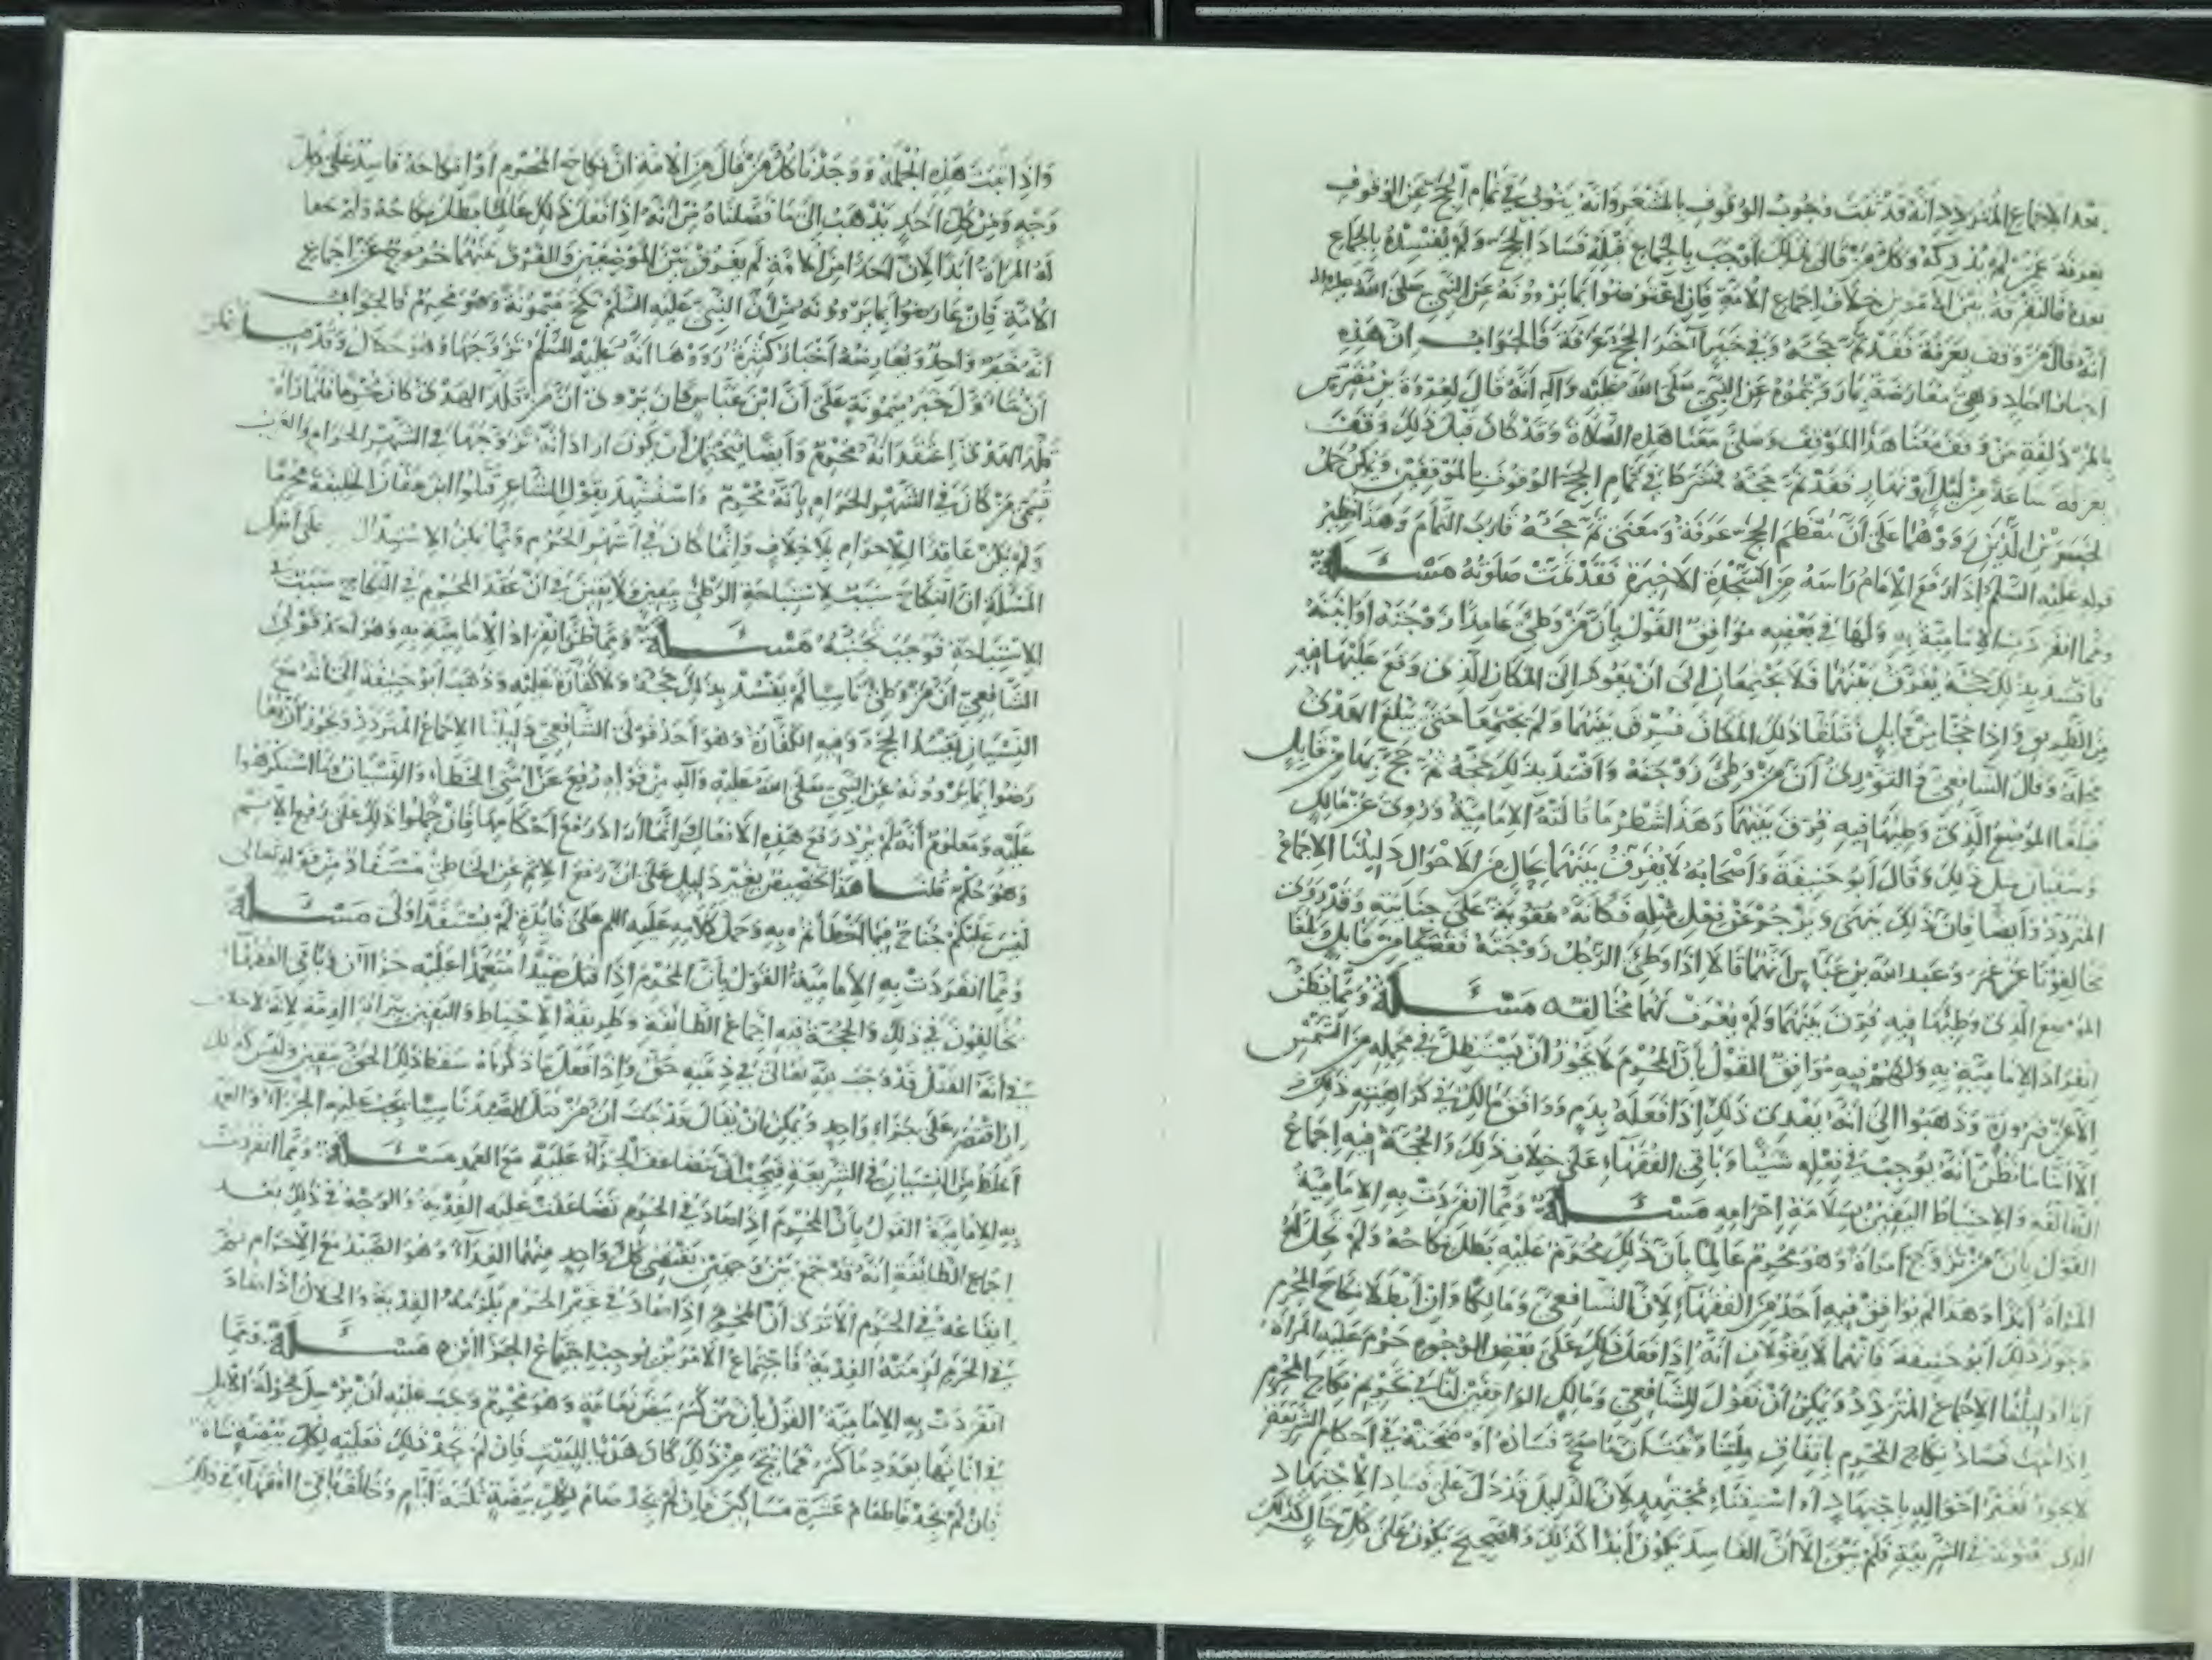 بعد الاجماع المتردد انه قد ثبت وجوب الوقوف بالمشعر وانه ينوب في تمام الحج عن الوقوف
بعرفة عمن لم يدركه وكل من قال بذلك اوجب بالجماع قبله فساد الحج ولم يفسده بالجماع
بعده فالتفرقة بين الامرين خلاف اجماع الامة فان اعترضوا بما يروونه عن النبي صلى الله عليه واله
انه قال من وقف بعرفة فقد تم حجه وفي خبر آخر الحج عرفة فالجواب ان هذه
اخبار احاد وهي معارضة بما رويتموه عن النبي صلى الله عليه وآله انه قال لعروة بن مضرس
بالمزدلفة من وقف معنا هذا الموقف وصلى معنا هذه الصلاة وقد كان قبل ذلك وقف
بعرفة ساعة من ليل او نهار فقد تم حجه فشركا في تمام الحج الوقوف بالموقفين ويمكن حمل
الخبرين الذين رووهما على ان معظم الحج عرفة ومعنى تم حجه قارب التمام وهذا نظير
قوله عليه السلم اذا رفع الامام راسه من السجدة الاخيرة فقد تمت صلوته مسئلة
ومما انفردت الامامية به ولها في بعضه موافق القول بان من وطئ عامدا زوجته او امته
فافسد بذلك حجه يفرق بينهما فلا يجتمعان الى ان يعودا الى المكان الذي وقع عليها فيه
من الطريق واذا حجا من قابل فبلغا ذلك المكان فرق بينهما ولم يجتمعا حتى يبلغ الهدى
محله وقال الشافعي والثوري ان من وطئ زوجته وافسد بذلك حجه ثم حج بها من قابل
فبلغا الموضع الذي وطئها فيه فرق بينهما وهذا شطر ما قالته الامامية وروى عن مالك
وسفيان مثل ذلك وقال ابو حنيفة واصحابه لا يفرق بينهما بحال من الاحوال دليلنا الاجماع
المتردد وايضا فان ذلك ينهى ويزجر عن فعل مثله فكانه عقوبة على جنايته وقد روى
مخالفونا عن عمر وعبد الله بن عباس انهما قالا اذا وطئ الرجل زوجته فقضيا من قابل وبلغا
الموضع الذي وطئها فيه فرق بينهما ولم يعرف لهما مخالف مسئلة ومما يظن
انفراد الامامية به ولهم فيه موافق القول بان المحرم لا يجوز ان يستظل في محمله من الشمس
الا عن ضرورة وذهبوا الى انه يفدى ذلك اذا فعله بدم ووافق مالك في كراهية ذلك
الا اننا ما نظن انه يوجب في فعله شيئا وباقي الفقهاء على خلاف ذلك والحجة فيه اجماع
الطائفة والاحتياط اليقين بسلامة احرامه مسئلة ومما انفردت به الامامية
القول بان من تزوج امراة وهو محرم عالما بان ذلك محرم عليه بطل نكاحه ولم تحل له
المراة ابدا وهذا لم يوافق فيه احد من الفقهاء لان الشافعي ومالكا وان ابطلا نكاح المحرم
وجوز ذلك ابو حنيفة فانهما لا يقولان انه اذا فعل ذلك على بعض الوجوه حرم عليه المراة
ابدا دليلنا الاجماع المتردد ويمكن ان نقول للشافعي ومالك الموافقين لنا في تحريم نكاح المحرم
اذا ثبت فساد نكاح المحرم باتفاق بيننا وثبت ان ما صح فساده او صحته في احكام الشريعة
لا يجوز تغير احواله باجتهاد او استفتاء مجتهد لان الدليل قد دل على فساد الاجتهاد
الذي يعنونه في الشريعة فلم يبق الا ان الفاسد يكون ابدا كذلك والصحيح يكون على كل حال كذلك
واذا ثبتت هذه الجملة ووجدنا كل من قال من الامة ان نكاح المحرم او انكاحه فاسد على كل
وجه ومن كل احد يذهب الى ما فصلناه من انه اذا فعل ذلك عالما بطل نكاحه ولم تحل
له المراة ابدا لان احدا من الامة لم يفرق بين الموضعين والفرق بينهما خروج عن اجماع
الامة فان عارضوا بما يروونه من ان النبي عليه السلم نكح ميمونة وهو محرم فالجواب
انه خبر واحد ويعارضه اخبار كثيرة رووها انه عليه السلم تزوجها وهو حلال وقد قيل يمكن
ان يتاول خبر ميمونة على ان ابن عباس كان يروى ان من قلد الهدى كان محرما فلما رآه
قلد الهدى اعتقد انه محرم وايضا يحتمل ان يكون اراد انه تزوجها في الشهر الحرام والعرب
تسمى من كان في الشهر الحرام بانه محرم واستشهد بقول الشاعر قتلوا ابن عفان الخليفة محرما
ولم يكن عاقدا للاحرام بلا خلاف وانما كان في اشهر الحرم ومما يمكن الاستدلال على اصل
المسئلة ان النكاح سبب لاستباحة الوطئ بيقين ولا يقين في ان عقد المحرم في النكاح سبب
الاستباحة فوجب تجنبه مسئلة ومما ظن انفراد الامامية به وهو احد قولى
الشافعي ان من وطئ ناسيا لم يفسد بذلك حجه ولا كفارة عليه وذهب ابو حنيفة الى انه مع
النسيان يفسد الحج وفيه الكفارة وهو احد قولى الشافعي دليلنا الاجماع المتردد ويجوز ان يعا
رضوا بما يروونه عن النبي صلى الله عليه وآله من قوله رفع عن امتى الخطاء والنسيان وما استكرهوا
عليه ومعلوم انه لم يرد رفع هذه الافعال وانما اراد رفع احكامها فان حملوا ذلك على رفع الاثم
وهو حكم قلنا هذا تخصيص بغير دليل على ان رفع الاثم عن الخاطئ مستفاد من قوله تعالى
ليس عليكم جناح فيما اخطاتم به وحمل كلامه عليه السلم على فائدة لم تستفد اولى مسئلة
ومما انفردت به الامامية القول بان المحرم اذا قتل صيدا متعمدا عليه جزاآن وباقي الفقهاء
يخالفون في ذلك والحجة فيه اجماع الطائفة وطريقة الاحتياط واليقين ببراءة الذمة لانه لا خلاف
في انه بالقتل قد وجب لله تعالى في ذمته حق واذا فعل ما ذكرناه سقط ذلك الحق بيقين وليس كذلك
ان اقتصر على جزاء واحد ويمكن ان يقال قد ثبت ان من قتل الصيد ناسيا يجب عليه الجزاء والعمد
اغلظ من النسيان في الشريعة فيجب ان يتضاعف الجزاء عليه مع العمد مسئلة ومما انفردت
به الامامية القول بان المحرم اذا صاد في الحرم تضاعفت عليه الفدية والوجه في ذلك بعد
اجماع الطائفة انه قد جمع بين وجهين يقتضى كل واحد منهما الفداء وهو الصيد مع الاحرام ثم
ايقاعه في الحرم الا ترى ان المحرم اذا صاد في غير الحرم يلزمه الفدية والحلال اذا صاد
في الحرم لزمته الفدية فاجتماع الامرين يوجب اجتماع الجزائين مسئلة ومما
انفردت به الامامية القول بان من كسر بيض نعامة وهو محرم وجب عليه ان يرسل فحولة الابل
في اناثها بعدد ما كسر فما نتج من ذلك كان هديا للبيت فان لم يجد ذلك فعليه لكل بيضة شاة
فان لم يجد فاطعام عشرة مساكين فان لم يجد صام لكل بيضة ثلثة ايام وخالف باقي الفقهاء في ذلك